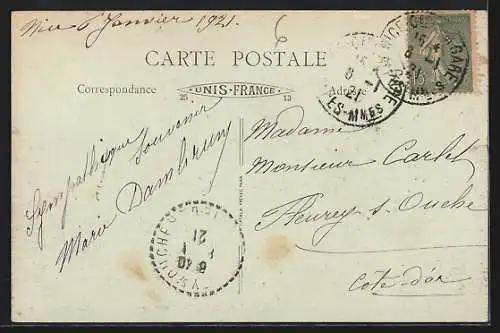 Nice 6 Janvier 1921.
6
CARTE POSTALE
Correspondance
UNIS-FRANCE
Adresse
25
13
Sympathique
Souvenir
Marie Dambrun
Madame
Monsieur Carlet
Fleurey s. Ouche
Côte-d'or
NICE GARE
8-1
21
ALPES-MMES
8 40
21